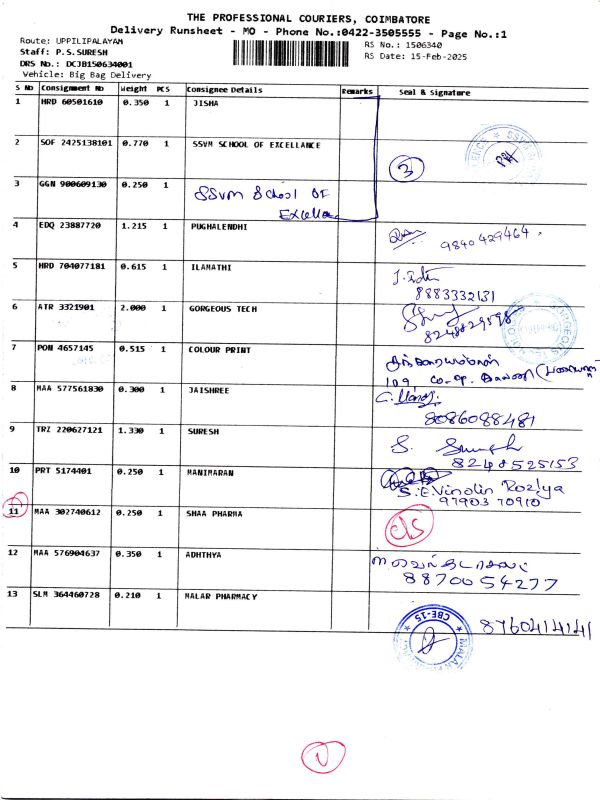 THE PROFESSIONAL COURIERS, COIMBATORE
Delivery Runsheet - MO - Phone No.:0422-3505555 - Page No.:1
Route: UPPILIPALAYAM
RS No.: 1506340
Staff: P.S.SURESH
RS Date: 15-Feb-2025
DRS No.: DCJB150634001
Vehicle: Big Bag Delivery
S No Consignment No Weight PCS Consignee Details Remarks Seal & Signature
1 HRD 60501610 0.350 1 JISHA
2 SOF 2425138101 0.770 1 SSVM SCHOOL OF EXCELLANCE
3
3 GGN 900609130 0.250 1 SSVM School OF
4 EDQ 23887720 1.215 1 PUGHALENDHI 9840429464.
5 HRD 704077181 0.615 1 ILAMATHI
8883332131
6 ATR 3321901 2.000 1 GORGEOUS TECH
8248829598
7 PON 4657145 0.515 1 COLOUR PRINT
109, co-op.
8 MAA 577561830 0.300 1 JAISHREE
8086088481
9 TRZ 220627121 1.330 1 SURESH S. Suresh
8248525153
10 PRT 5174401 0.250 1 MANIMARAN S.E.Vinolin Roziya
97903 70910
11 MAA 302740612 0.250 1 SHAA PHARMA
12 MAA 576904637 0.350 1 ADHTHYA
88700 54277
13 SLM 364460728 0.210 1 MALAR PHARMACY
CBE-15
8760414141